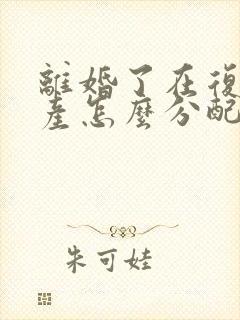 離婚了在復
產怎麼分配
朱可娃